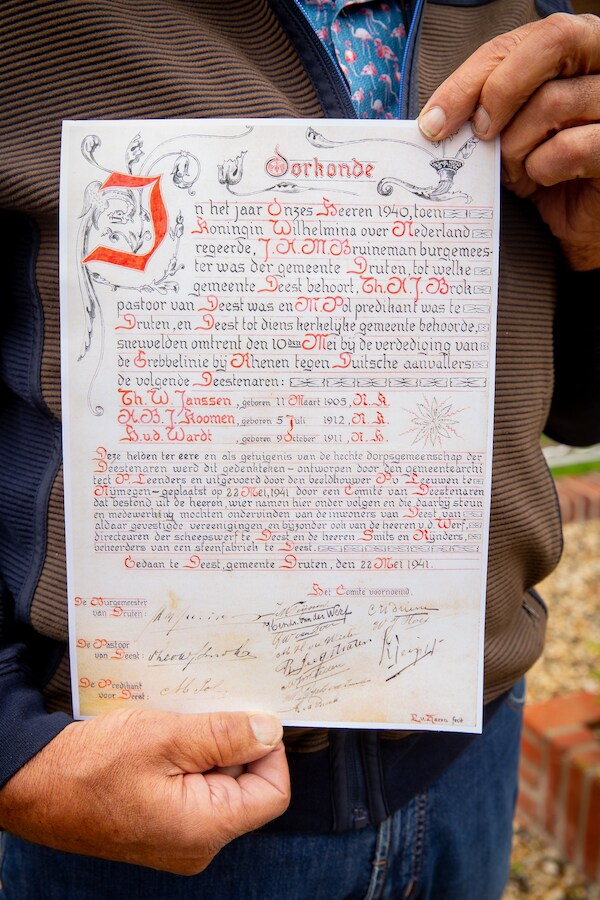 Oorkonde
In het jaar Onzes Heeren 1940, toen
Koningin Wilhelmina over Nederland
regeerde, J.H.M. Bruineman burgemees-
ter was der gemeente Druten, tot welke
gemeente Deest behoort, Th. H. J. Brok
pastoor van Deest was en M. Pol predikant was te
Druten, en Deest tot diens kerkelijke gemeente behoorde,
sneuvelden omtrent den 10den Mei bij de verdediging van
de Grebbelinie bij Rhenen tegen Duitsche aanvallers
de volgende Deestenaren:
Th. W. Janssen, geboren 11 Maart 1905, R. K.
H. B. J. Koomen, geboren 5 Juli 1912, R. K.
H. v.d. Wardt, geboren 9 October 1911, N. H.
Deze helden ter eere en als getuigenis van de hechte dorpsgemeenschap der
Deestenaren werd dit gedenkteken - ontworpen door den gemeentearchi
tect P. Leenders en uitgevoerd door den beeldhouwer P. v. Leeuwen te
Nijmegen - geplaatst op 22 Mei, 1941 door een Comité van Deestenaren
dat bestond uit de heeren, wier namen hier onder volgen en die daarbij steun
en medewerking mochten ondervinden van de inwoners van Deest, van
aldaar gevestigde vereenigingen, en bijzonder ook van de heeren v.d. Werf,
directeuren der scheepswerf te Deest en de heeren Smits en Rijnders,
beheerders van een steenfabriek te Deest.
Gedaan te Deest, gemeente Druten, den 22 Mei 1941.
Het Comité voornoemd,
De Burgemeester
van Druten:
De Pastoor
van Deest:
De Predikant
voor Deest:
M. Pol